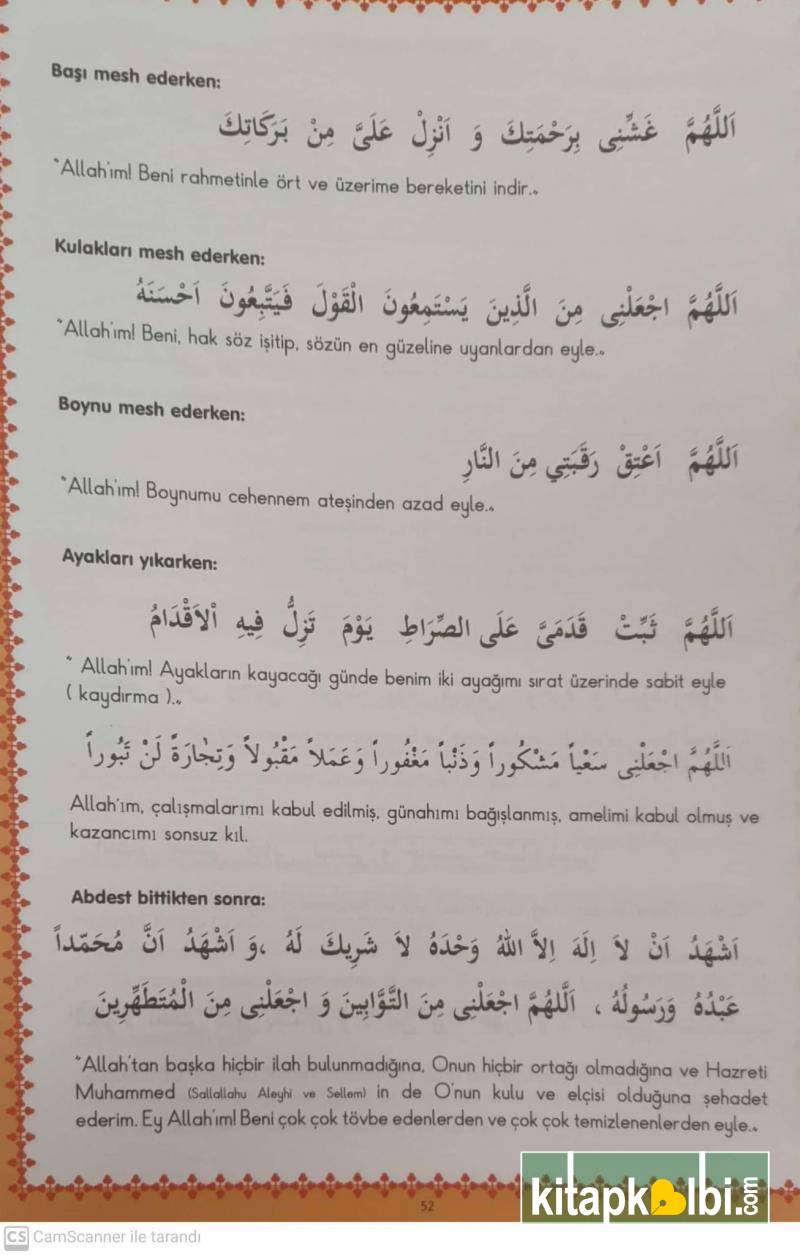 Başı mesh ederken:
اَللَّهُمَّ غَشِّنِى بِرَحْمَتِكَ وَ اَنْزِلْ عَلَىَّ مِنْ بَرَكَاتِكَ
"Allah'ım! Beni rahmetinle ört ve üzerime bereketini indir.„
Kulakları mesh ederken:
اَللَّهُمَّ اجْعَلْنِى مِنَ الَّذِينَ يَسْتَمِعُونَ الْقَوْلَ فَيَتَّبِعُونَ اَحْسَنَهُ
"Allah'ım! Beni, hak söz işitip, sözün en güzeline uyanlardan eyle.„
Boynu mesh ederken:
اَللَّهُمَّ اَعْتِقْ رَقَبَتِي مِنَ النَّارِ
"Allah'ım! Boynumu cehennem ateşinden azad eyle.„
Ayakları yıkarken:
اَللَّهُمَّ ثَبِّتْ قَدَمَىَّ عَلَى الصِّرَاطِ يَوْمَ تَزِلُّ فِيهِ اْلاَقْدَامُ
" Allah'ım! Ayakların kayacağı günde benim iki ayağımı sırat üzerinde sabit eyle
( kaydırma ).„
اَللَّهُمَّ اجْعَلْنِى سَعْياً مَشْكُوراً وَذَنْباً مَغْفُوراً وَعَمَلاً مَقْبُولاً وَتِجَارَةً لَنْ تَبُوراً
Allah'ım, çalışmalarımı kabul edilmiş, günahımı bağışlanmış, amelimi kabul olmuş ve
kazancımı sonsuz kıl.
Abdest bittikten sonra:
اَشْهَدُ اَنْ لاَ اِلَهَ اِلاَّ اللهُ وَحْدَهُ لاَ شَرِيكَ لَهُ ،وَ اَشْهَدُ اَنَّ مُحَمّداً
عَبْدُهُ وَرَسُولُهُ ، اَللهُمَّ اجْعَلْنِى مِنَ التَّوَّابِينَ وَ اجْعَلْنِى مِنَ الْمُتَطَهِّرِينَ
"Allah'tan başka hiçbir ilah bulunmadığına, Onun hiçbir ortağı olmadığına ve Hazreti
Muhammed (Sallallahu Aleyhi ve Sellem) in de O'nun kulu ve elçisi olduğuna şehadet
ederim. Ey Allah'ım! Beni çok çok tövbe edenlerden ve çok çok temizlenenlerden eyle.„
52
kitapkalbi.com
CS CamScanner ile tarandı